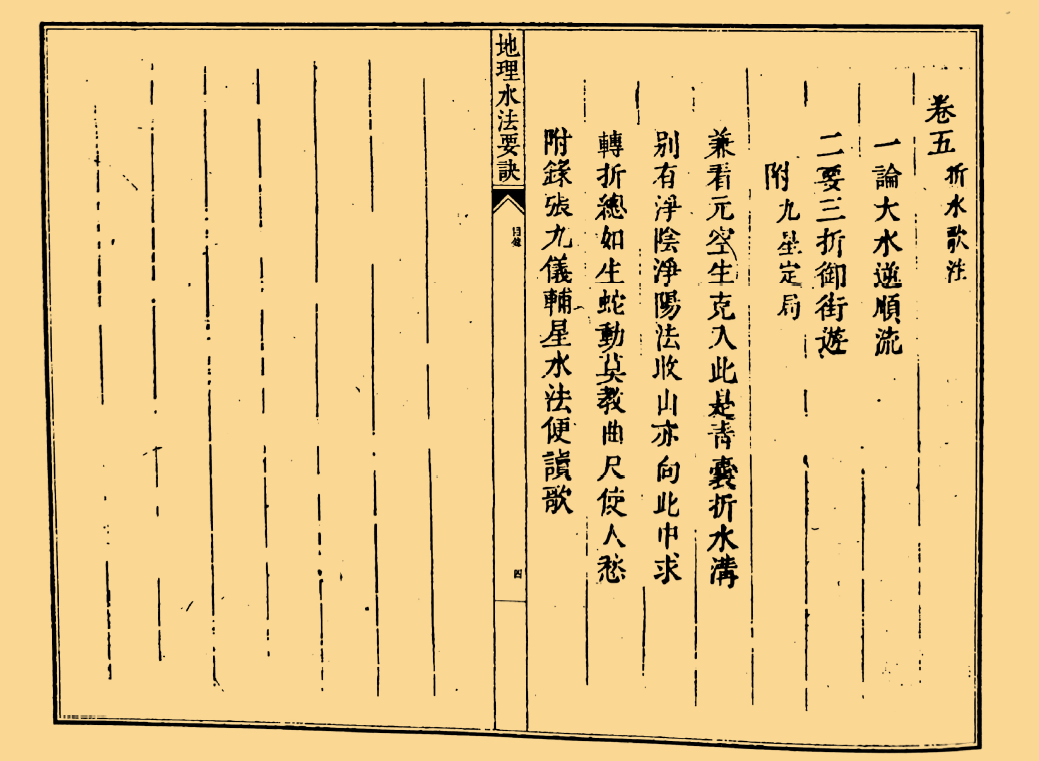 卷五
折水歌注
一論大水逆順流
二要三折御街遊
附九星定局
兼看元空生克入此是青囊折水溝
别有淨陰淨陽法收山亦向此中求
轉折總如生蛇動莫教曲尺使人愁
附錄張九儀輔星水法便讀歌
地理水法要訣
目錄
四